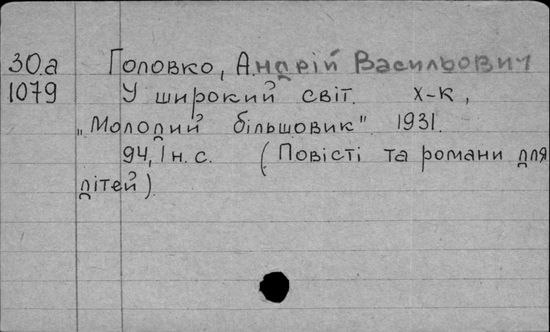 30.а Головко, Андрій Васильович
1079 У широкий світ. Х-К,
„Молодий більшовик" 1931.
94, 1 н. с. (Повісті та романи для
дітей).